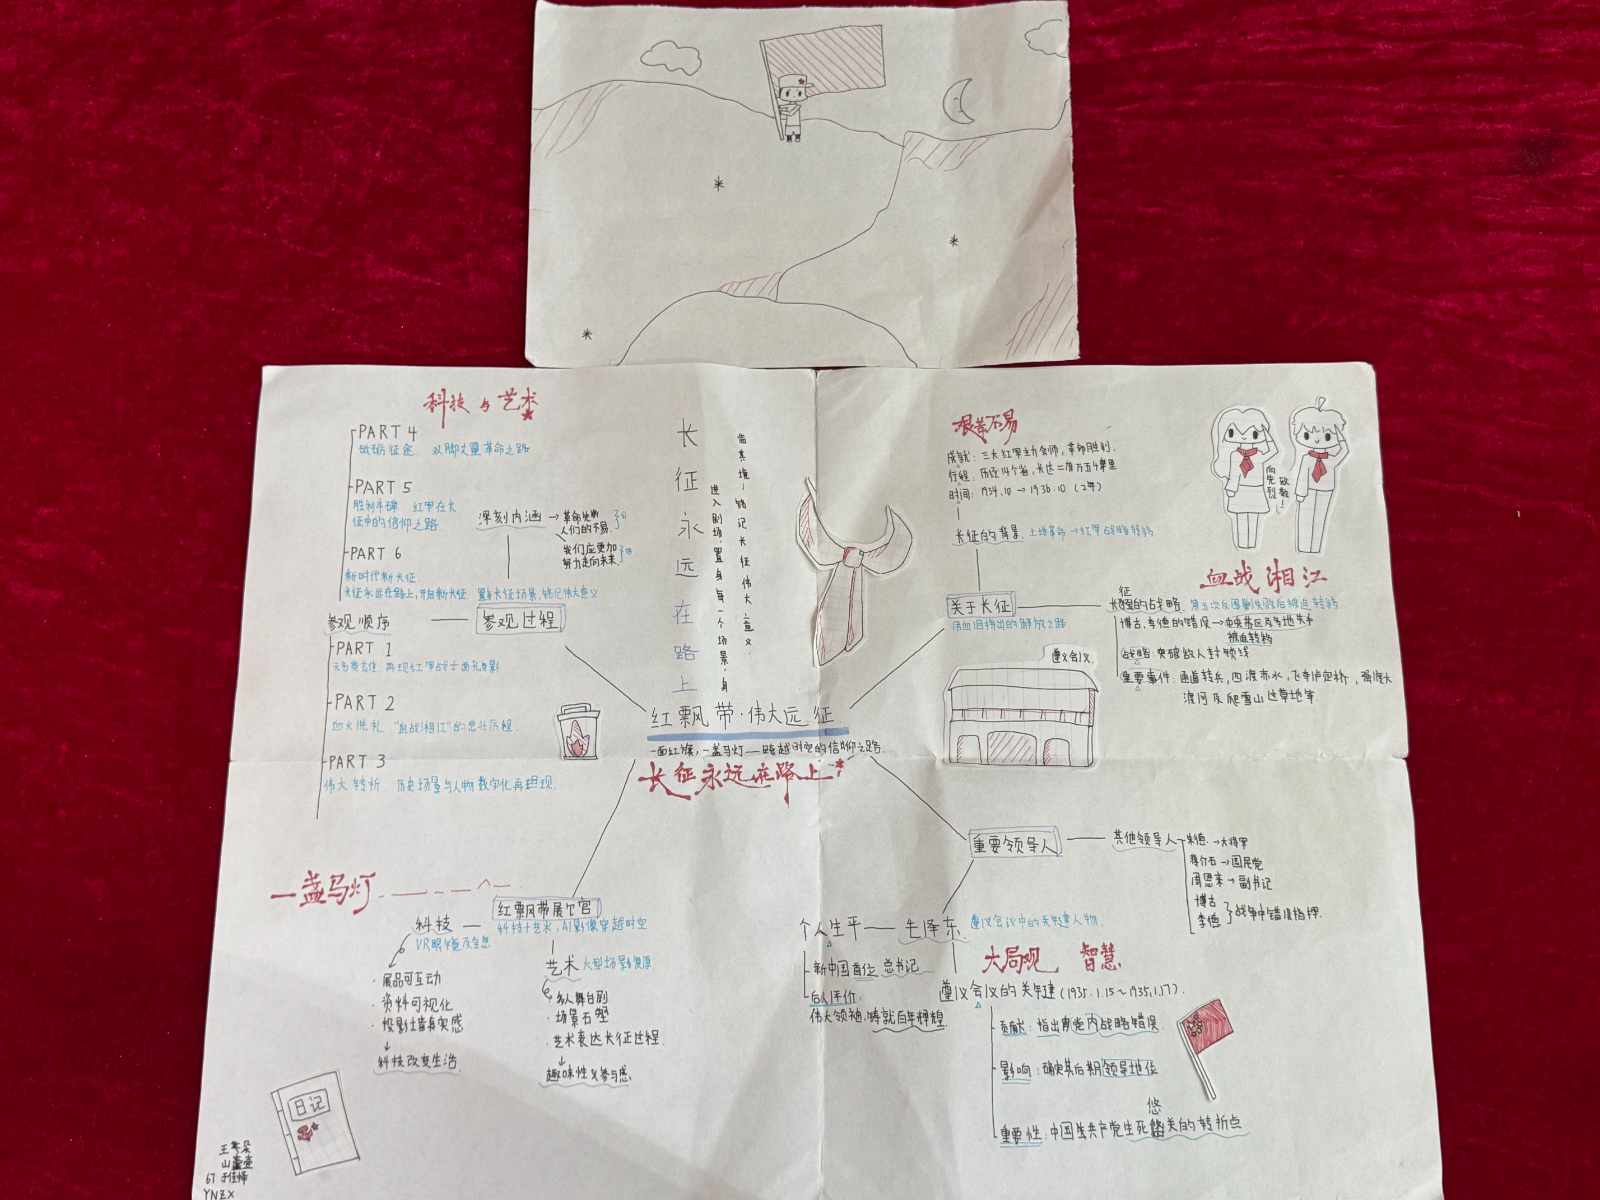 科技与艺术
PART 4
砥砺征途 双脚丈量革命之路
PART 5
胜利丰碑 红军在长
征中的信仰之路
PART 6
新时代新长征
长征永远在路上,开启新长征
深刻内涵 → 革命先烈
人们的不易
我们应更加
努力走向未来
置身长征场景,铭记伟大意义
参观顺序
参观过程
PART 1
再现红军战士面孔身影
PART 2
血火洗礼 "血战湘江"的悲壮历程
PART 3
伟大转折 历史场景与人物数字化再现
长征永远在路上
临其境,铭记长征伟大意义.
进入剧场,置身每一个场景,身
红飘带·伟大远征
一面红旗,一盏马灯——跨越时空的信仰之路.
长征永远在路上
艰苦不易
成就: 三大红军主力会师,革命胜利.
行程: 历经14个省,长达二万五千里
时间: 1934.10 → 1936.10 (2年)
长征的背景 土地革命→红军战略转移
向先烈
致敬!
血战湘江
关于长征
用血泪铸出的解放之路
征
长的战略 第五次反围剿失败后被迫转移
博古,李德的错误→中央苏区及多地失手
被迫转移
战略: 突破敌人封锁线
重要事件: 通道转兵,四渡赤水,飞夺泸定桥,强渡大
渡河及爬雪山过草地等.
遵义会议.
一盏马灯
红飘带展厅宫
科技+艺术,AI影像穿越时空
科技
VR眼镜及全息
· 展品可互动
· 资料可视化
· 投影墙真实感
科技改变生活
艺术 大型场景复原
· 多人舞台剧
· 场景石塑
· 艺术表达长征过程.
趣味性及参与感
日记
山壹壹
67 于佳烯
YNZX
重要领导人
其他领导人
朱德 → 大将军
蒋介石 → 国民党
周恩来 → 副书记
博古
李德
战争中错误指挥.
个人生平 —— 毛泽东 遵义会议中的关键人物.
新中国首位总书记
后人评价:
伟大领袖,铸就百年辉煌
大局观 智慧
遵义会议的关键 (1935.1.15~1935.1.17).
贡献: 指出原党内战略错误.
影响: 确定其后期领导地位
悠
重要性: 中国共产党生死关的转折点